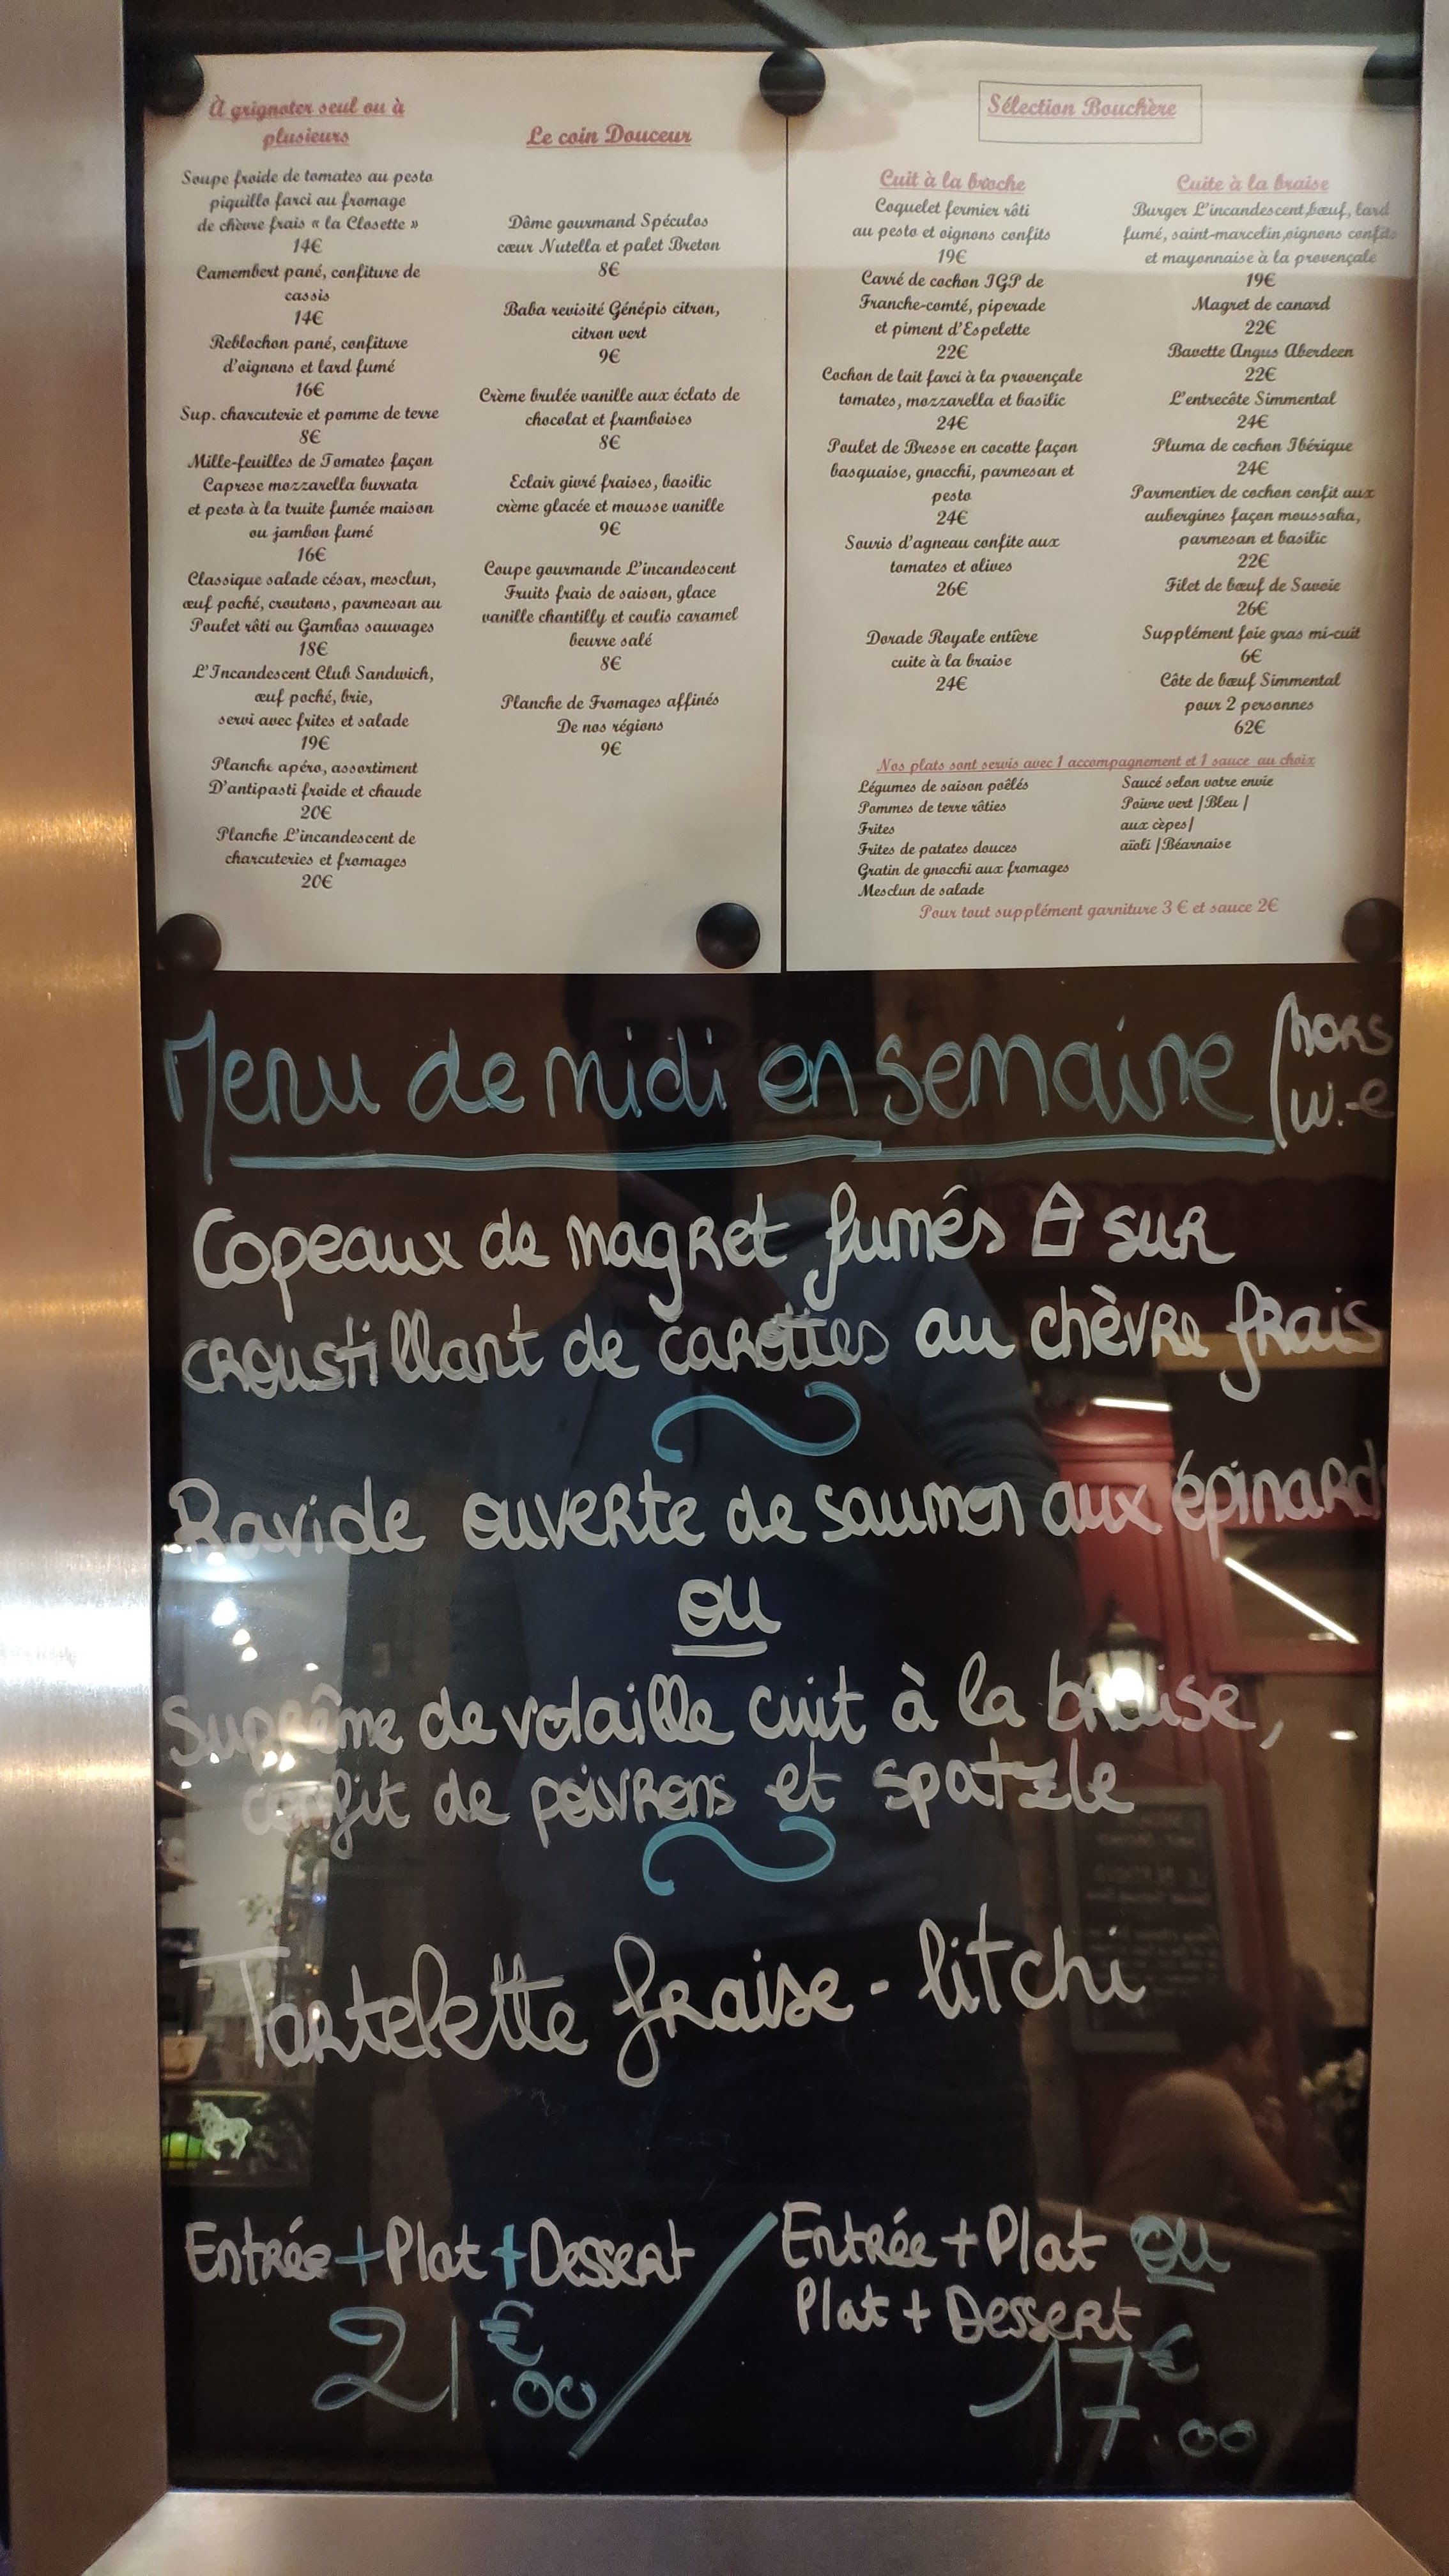 À grignoter seul ou à
plusieurs
Soupe froide de tomates au pesto
piquillo farci au fromage
de chèvre frais « la Closette »
14€
Camembert pané, confiture de
cassis
14€
Reblochon pané, confiture
d'oignons et lard fumé
16€
Sup. charcuterie et pomme de terre
8€
Mille-feuilles de Tomates façon
Caprese mozzarella burrata
et pesto à la truite fumée maison
ou jambon fumé
16€
Classique salade césar, mesclun,
œuf poché, croutons, parmesan au
Poulet rôti ou Gambas sauvages
18€
L'Incandescent Club Sandwich,
œuf poché, brie,
servi avec frites et salade
19€
Planche apéro, assortiment
D'antipasti froide et chaude
20€
Planche L'incandescent de
charcuteries et fromages
20€
Le coin Douceur
Dôme gourmand Spéculos
cœur Nutella et palet Breton
8€
Baba revisité Génépis citron,
citron vert
9€
Crème brulée vanille aux éclats de
chocolat et framboises
8€
Eclair givré fraises, basilic
crème glacée et mousse vanille
9€
Coupe gourmande L'incandescent
Fruits frais de saison, glace
vanille chantilly et coulis caramel
beurre salé
8€
Planche de Fromages affinés
De nos régions
9€
Sélection Bouchère
Cuit à la broche
Coquelet fermier rôti
au pesto et oignons confits
19€
Carré de cochon IGP de
Franche-comté, piperade
et piment d'Espelette
22€
Cochon de lait farci à la provençale
tomates, mozzarella et basilic
24€
Poulet de Bresse en cocotte façon
basquaise, gnocchi, parmesan et
pesto
24€
Souris d'agneau confite aux
tomates et olives
26€
Dorade Royale entière
cuite à la braise
24€
Cuite à la braise
Burger L'incandescent,bœuf, lard
fumé, saint-marcelin,oignons confits
et mayonnaise à la provençale
19€
Magret de canard
22€
Bavette Angus Aberdeen
22€
L'entrecôte Simmental
24€
Pluma de cochon Ibérique
24€
Parmentier de cochon confit aux
aubergines façon moussaka,
parmesan et basilic
22€
Filet de bœuf de Savoie
26€
Supplément foie gras mi-cuit
6€
Côte de bœuf Simmental
pour 2 personnes
62€
Nos plats sont servis avec 1 accompagnement et 1 sauce au choix
Légumes de saison poêlés
Pommes de terre rôties
Frites
Frites de patates douces
Gratin de gnocchi aux fromages
Mesclun de salade
Saucé selon votre envie
Poivre vert |Bleu |
aux cèpes|
aïoli |Béarnaise
Pour tout supplément garniture 3 € et sauce 2€
Menu de midi en semaine (hors
w.-e
Copeaux de magret fumés sur
croustillant de carottes au chèvre frais
Raviole ouverte de saumon aux épinards
ou
Suprême de volaille cuit à la braise,
confit de poivrons et spatzle
Tartelette fraise - litchi
Entrée + Plat + Dessert
21€.00
Entrée + Plat ou
Plat + Dessert
17€.00